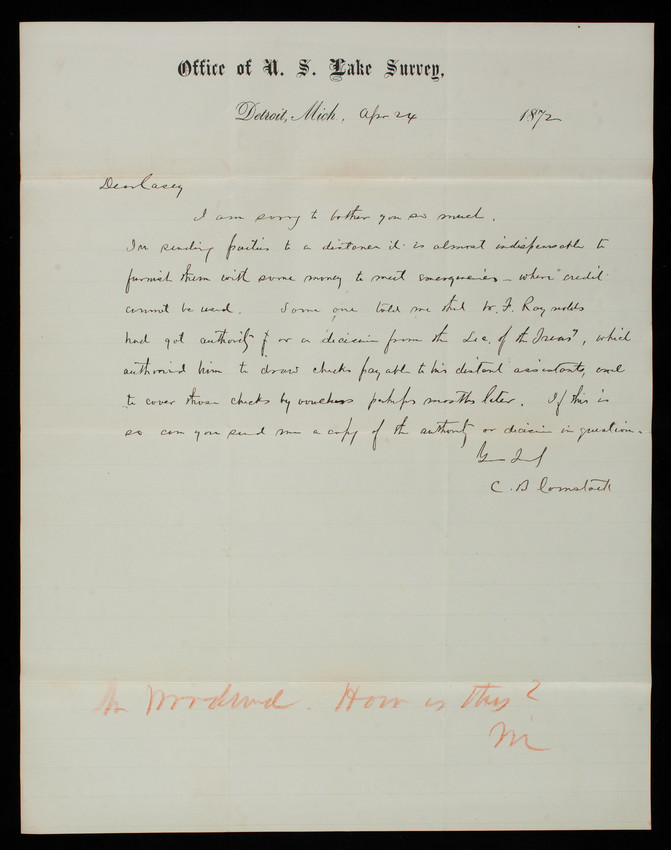 Office of U. S. Lake Survey,
Detroit, Mich, Apr 24 1872
Dear Casey
I am sorry to bother you so much.
In sending parties to a distance it is almost indispensable to
furnish them with some money to meet emergencies – where credit
cannot be used. Some one told me that W. F. Raynolds
had got authority or a decision from the Sec. of the Treasy, which
authorized him to draw checks payable to his distant assistants, and
to cover those checks by vouchers perhaps months later. If this is
so can you send me a copy of the authority or decision in question.
C. B Comstock
Mr Woodward. How is this?